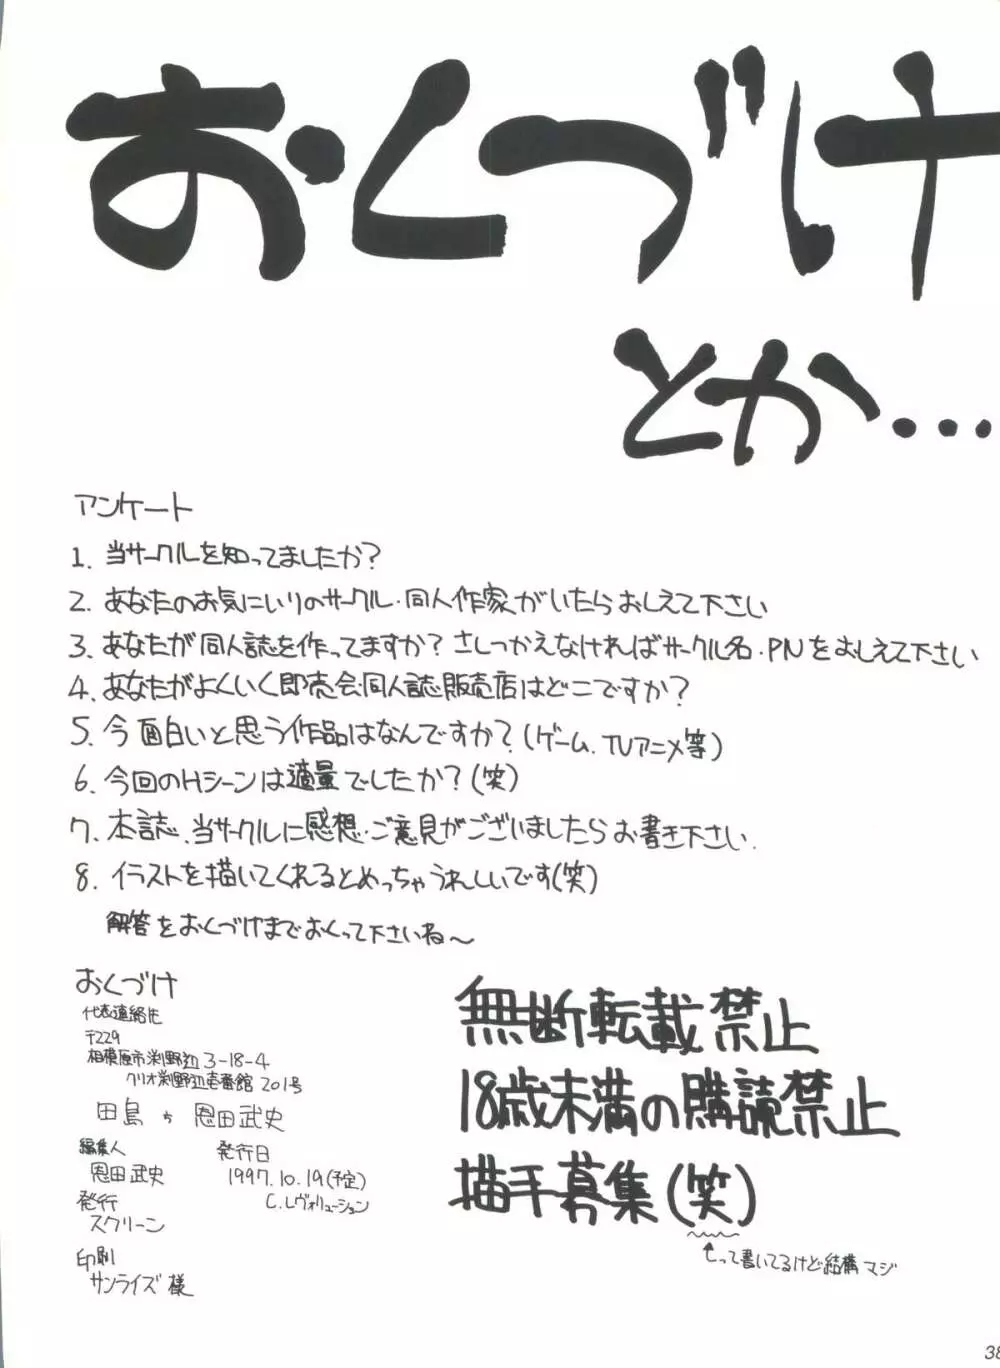 おくづけ
とか…
アンケート
1. 当サークルを知ってましたか?
2. あなたのお気にいりのサークル・同人作家がいたらおしえて下さい
3. あなたが同人誌を作ってますか? さしつかえなければサークル名・PNをおしえて下さい
4. あなたがよくいく即売会・同人誌販売店はどこですか?
5. 今面白いと思う作品はなんですか?(ゲーム、TVアニメ等)
6. 今回のHシーンは適量でしたか?(笑)
7. 本誌、当サークルに感想・ご意見がございましたらお書き下さい.
8. イラストを描いてくれるとめっちゃうれしいです(笑)
解答をおくづけまでおくって下さいね〜
おくづけ
代表連絡先
〒229
相模原市渕野辺3-18-4
クリオ渕野辺壱番館201号
田島方 恩田武史
編集人
恩田武史
発行
スクリーン
印刷
サンライズ様
発行日
1997.10.19(予定)
C.レヴォリューション
無断転載禁止
18歳未満の購読禁止
描手募集(笑)
って書いてるけど結構マジ
38